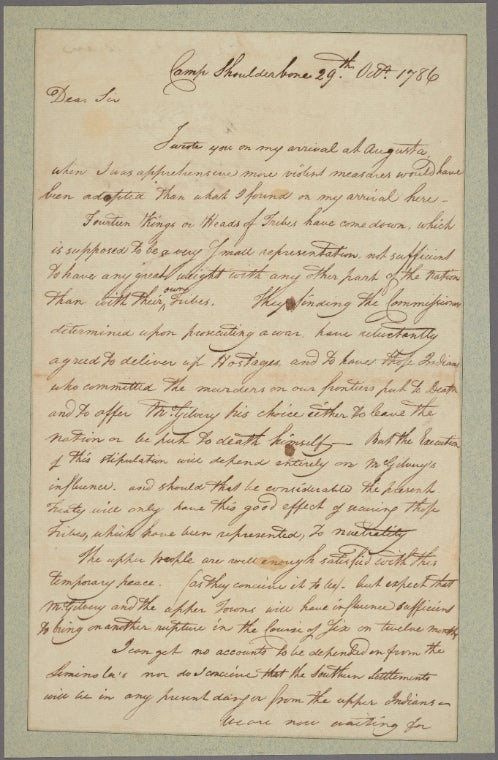 Camp Shoulderbone 29.th Octr. 1786
Dear Sir
I wrote you on my arrival at Augusta,
when I was apprehensive more violent measures would have
been adopted than what I found on my arrival here —
Fourteen Kings or Heads of Tribes have come down, which
is supposed to be a very small representation, not sufficient
to have any great weight with any other part of the Nation
than with their own Tribes. They finding the Commissioners
determined upon prosecuting a war, have reluctantly
agreed to deliver up Hostages, and to have those Indians
who committed the murders on our frontiers put to Death
and to offer McGilvery his choice either to leave the
nation or be put to death himself — But the Execution
of this stipulation will depend entirely on McGilvery's
influence. and should that be considerable the present
Treaty will only have this good effect of securing those
Tribes, which have been represented, to neutrality
The upper people are well enough satisfied with this
temporary peace. (as they conceive it to be). but expect that
McGilvery and the upper Towns will have influence sufficient
to bring on another rupture in the Course of Six or twelve months
I can get no accounts to be depended on from the
Siminola's nor do I conceive that the Southern Settlements
will be in any present danger from the upper Indians —
We are now waiting for